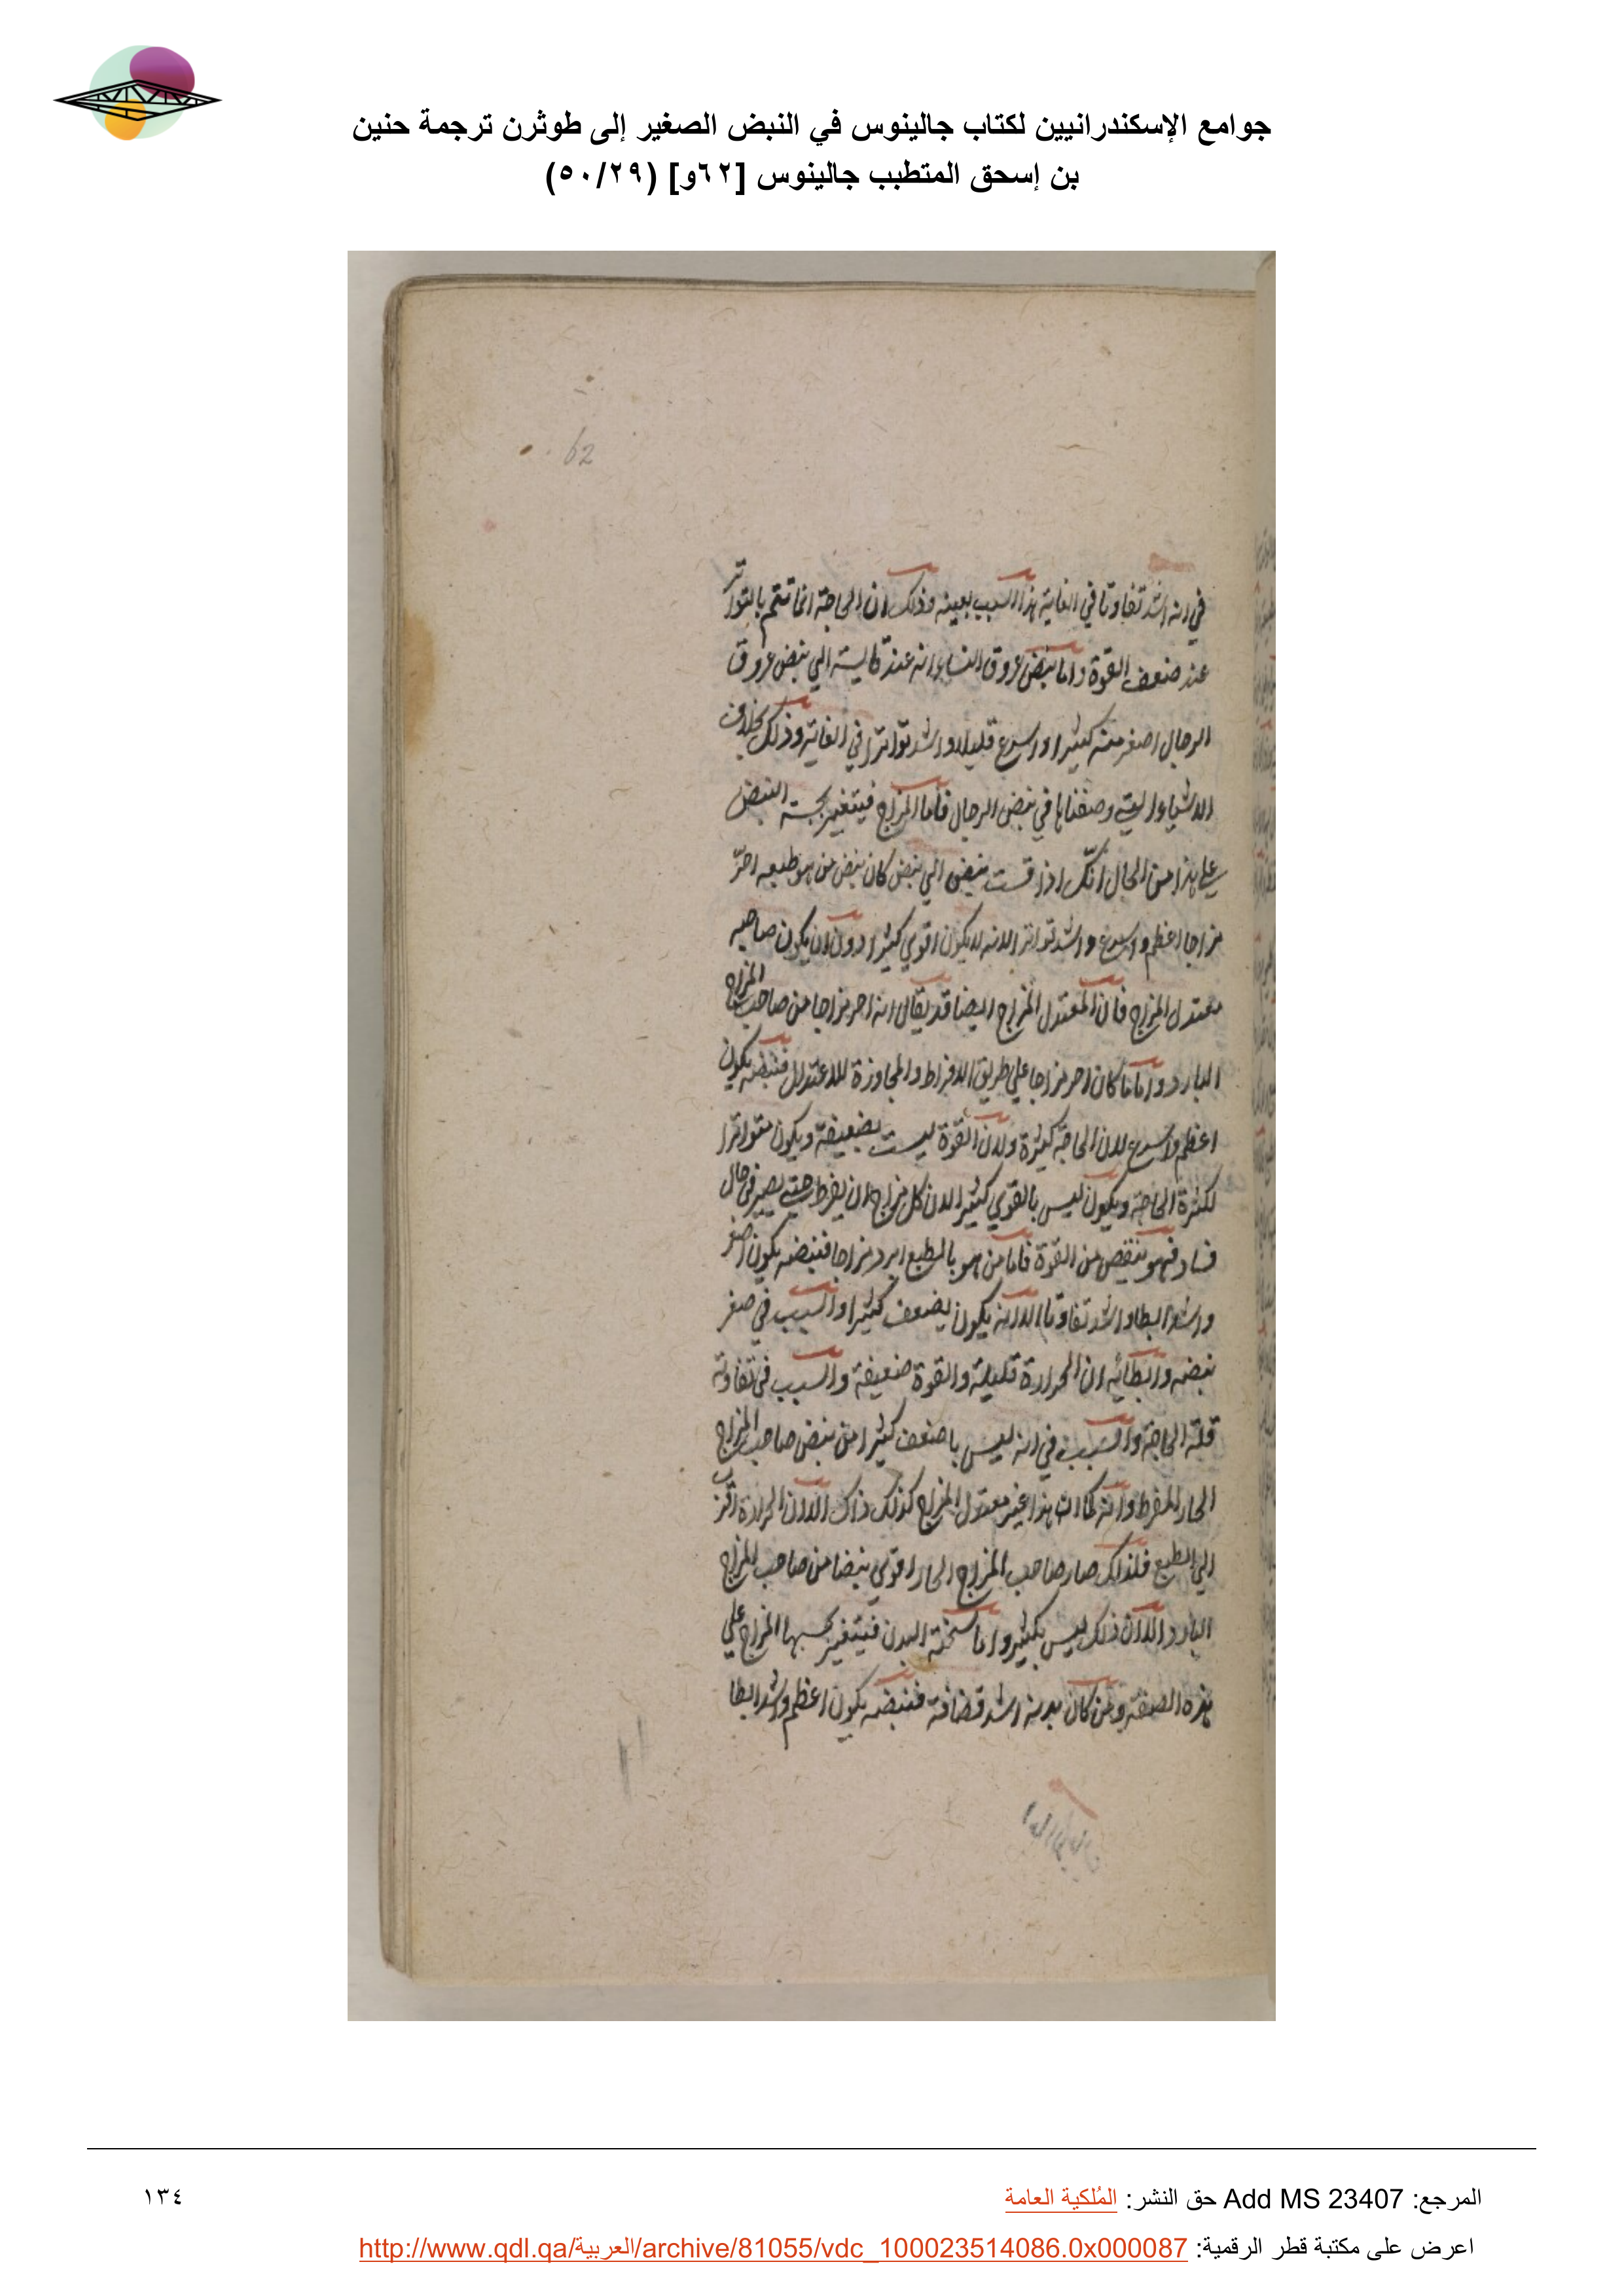 جوامع الإسكندرانيين لكتاب جالينوس في النبض الصغير إلى طوثرن ترجمة حنين
بن إسحق المتطبب جالينوس [٦٢و] (٥٠/٢٩)
62
في انه اشد تفاوتا في الغاية هذا السبب بعينه وذلك ان الحاجة انما تتم بالتواتر
عند ضعف القوة واما نبض عروق النساء انه عند قاليسه الي نبض عروق
الرجال اصغر منه كثيرا واسرع قليلا واشد تواترا في الغاية وذلك بخلاف
الاشياء التي وصفناها في نبض الرجال فاما المزاج فيتغير بحسبه النبض
علي هذا من الحال انك اذا قست نبض الي نبض كان نبض من هو طبعه احرّ
مزاجا اعظم واسرع واشد تواترا لانه لا يكون اقوي كثيرا دون ان يكون صاحبه
معتدل المزاج فان المعتدل المزاج ايضا قد يقال انه احر مزاجا من صاحب المزاج
البارد واما ما كان احر مزاجا علي طريق الافراط والمجاوزة للاعتدال فنبضه يكون
اعظم واسرع لان الحاجة كثيرة ولان القوة ليست بضعيفة ويكون متواترا
لكثرة الحاجة ويكون ليس بالقوي كثيرا لان كل مزاج ان يفرط حتي يصير في حال
فساد فهو ينقص من القوة فاما من هو بالطبع ابرد مزاجا فنبضه يكون اصغر
واشد ابطا واشد تفاوتا الا انه يكون يضعف كثيرا والسبب في صغر
نبضه وابطائه ان الحرارة قليلة والقوة ضعيفة والسبب في تفاوته
قلة الحاجة والسبب في انه ليس باضعف كثيرا من نبض صاحب المزاج
الحار المفرط وانه كما ان هذا غير معتدل المزاج كذلك ذاك الا ان الحرارة اقرب
الي الطبع فلذلك صار صاحب المزاج الحار اقوي نبضا من صاحب المزاج
البارد الا ان ذلك ليس بكثير واما سخنة البدن فيتغير بحسبها المزاج علي
هذه الصفة ومن كان بدنه اشد قضافة فنبضه يكون اعظم واشد ابطا
المرجع: Add MS 23407 حق النشر: المُلكية العامة
١٣٤
اعرض على مكتبة قطر الرقمية: http://www.qdl.qa/العربية/archive/81055/vdc_100023514086.0x000087